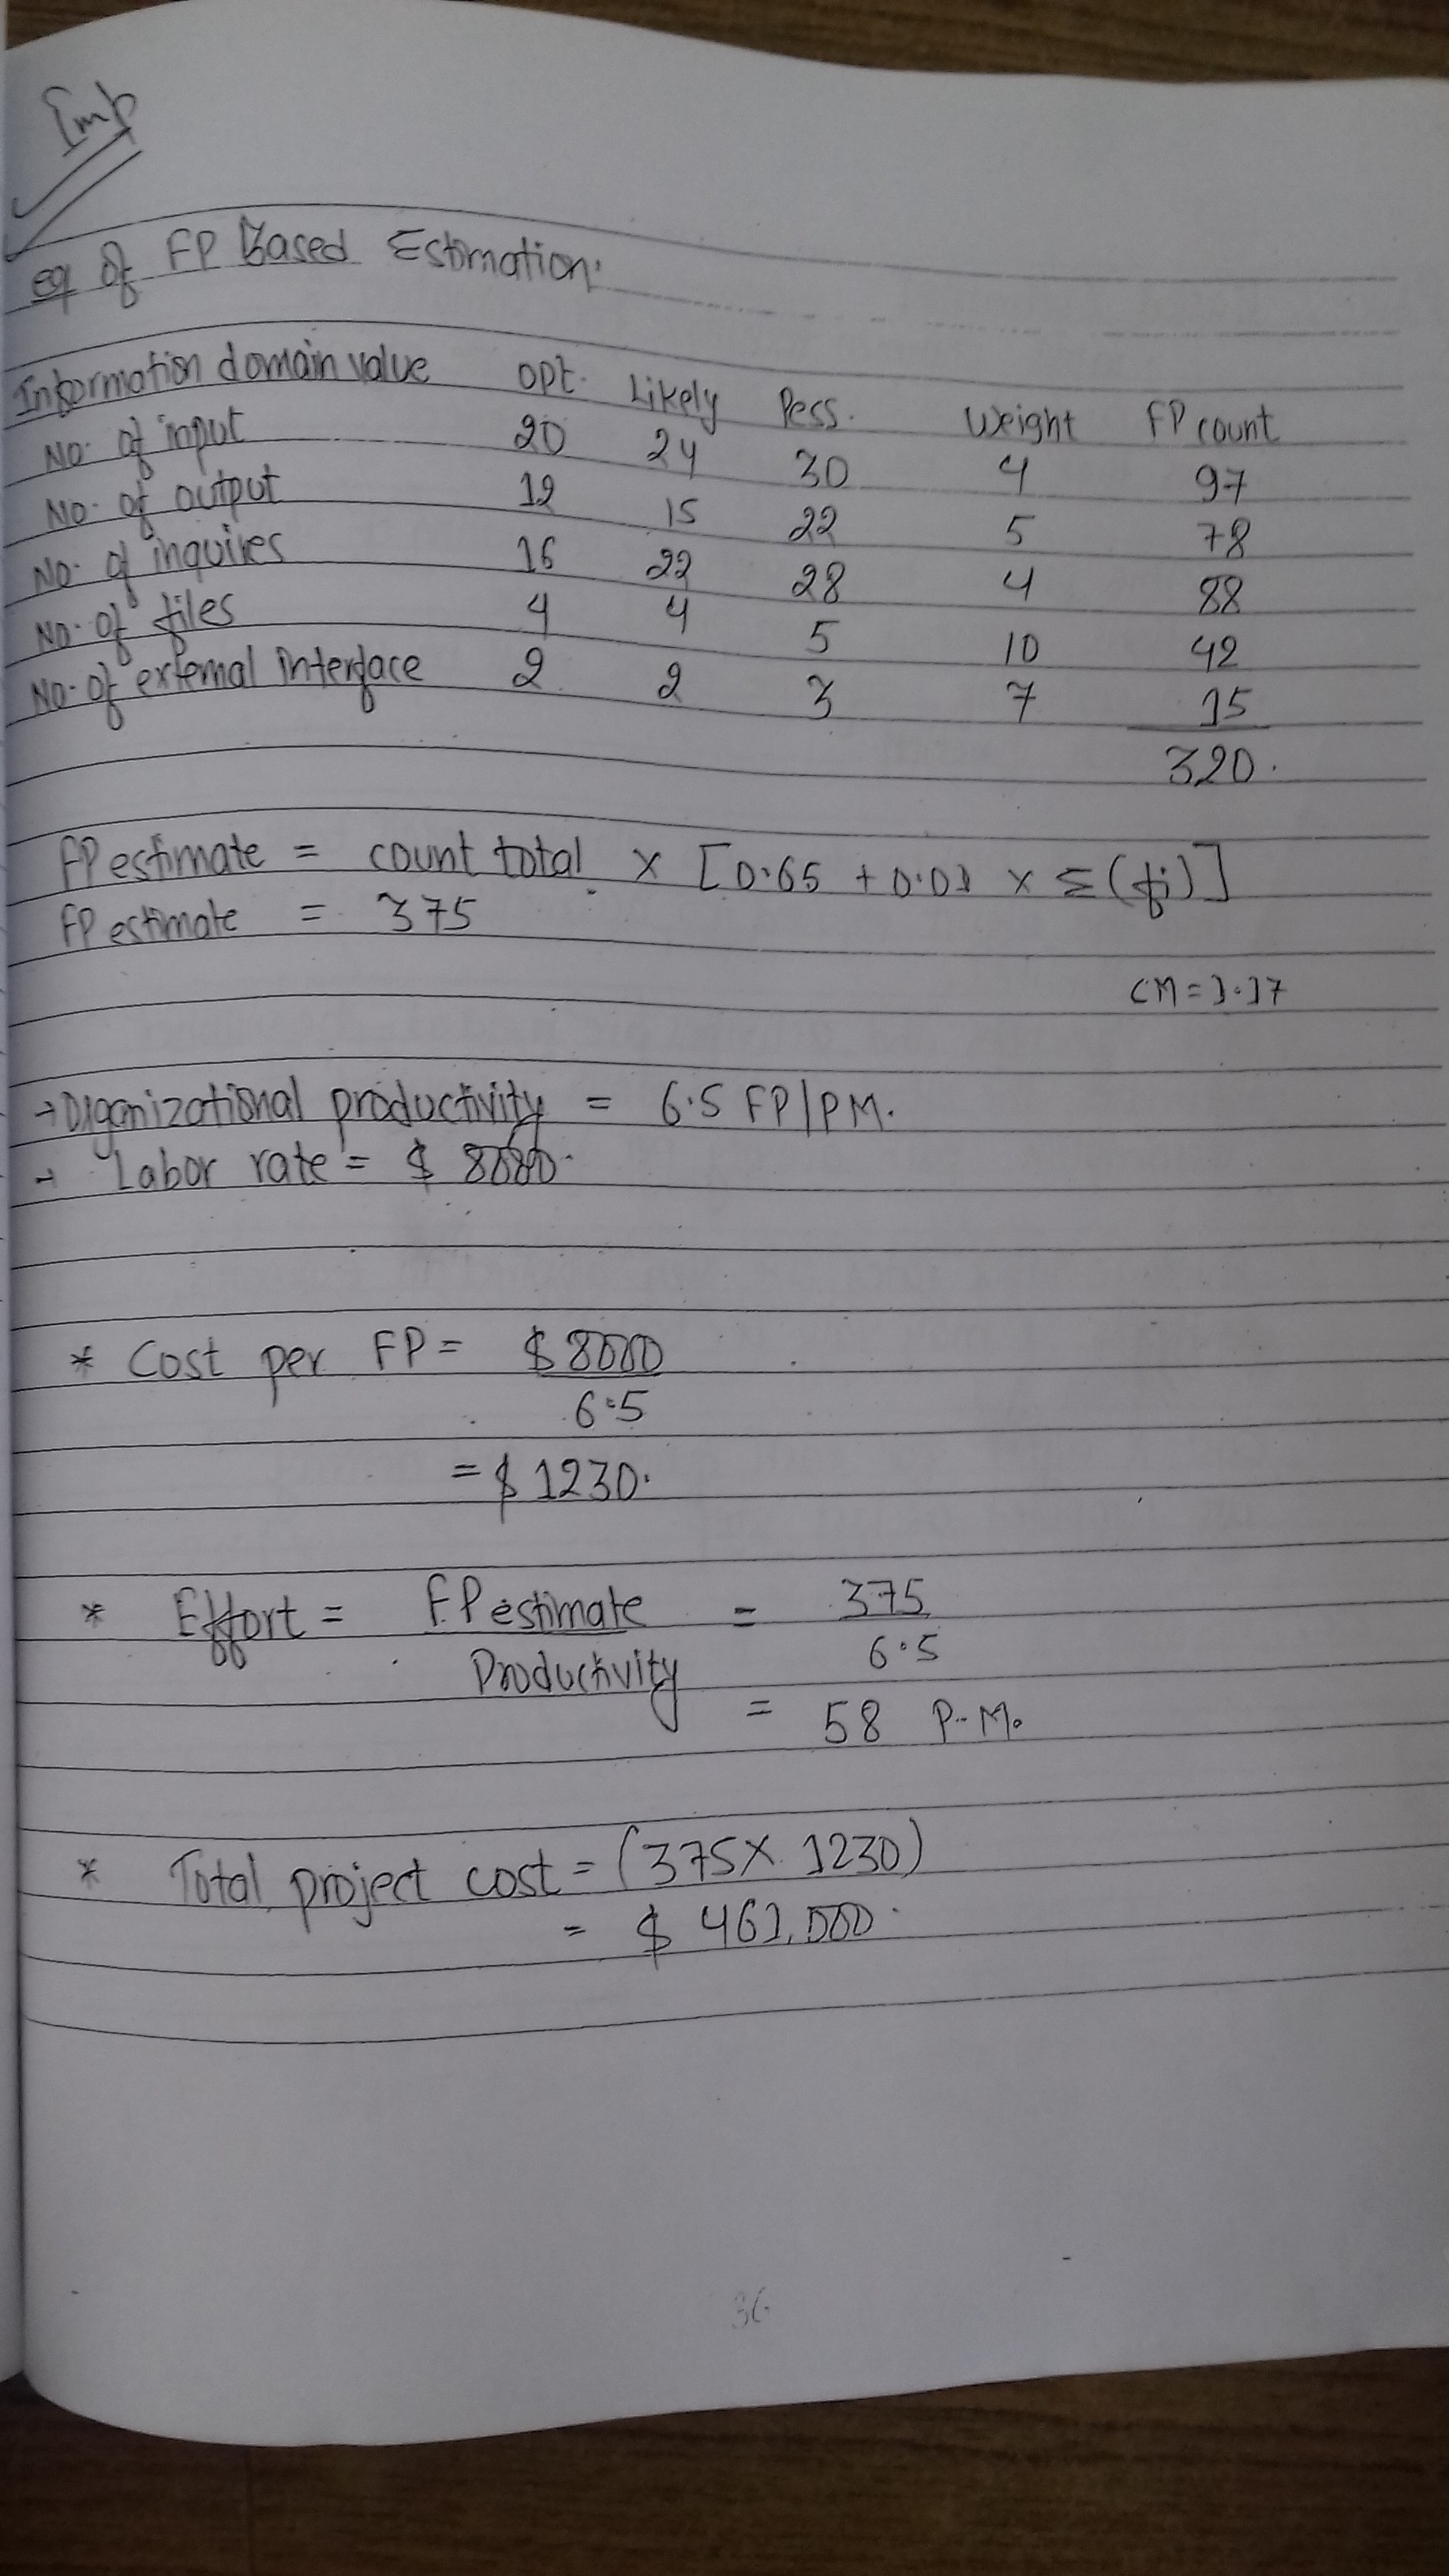 Imp
eg of FP Based Estimation.
Information domain value Opt. Likely Pess. Weight FP count
No. of input 20 24 30 4 97
No. of output 12 15 22 5 78
No. of inquires 16 22 28 4 88
No. of files 4 4 5 10 42
No. of external interface 2 2 3 7 15
320.
FP estimate = count total × [0.65 + 0.01 × Σ(fi)]
FP estimate = 375
CM = 1.17
→ Organizational productivity = 6.5 FP/PM.
→ Labor rate = $ 8000.
* Cost per FP = $ 8000
6.5
= $ 1230.
* Effort = FP estimate = 375
Productivity 6.5
= 58 P-M.
* Total project cost = (375 × 1230)
= $ 461,000.
36